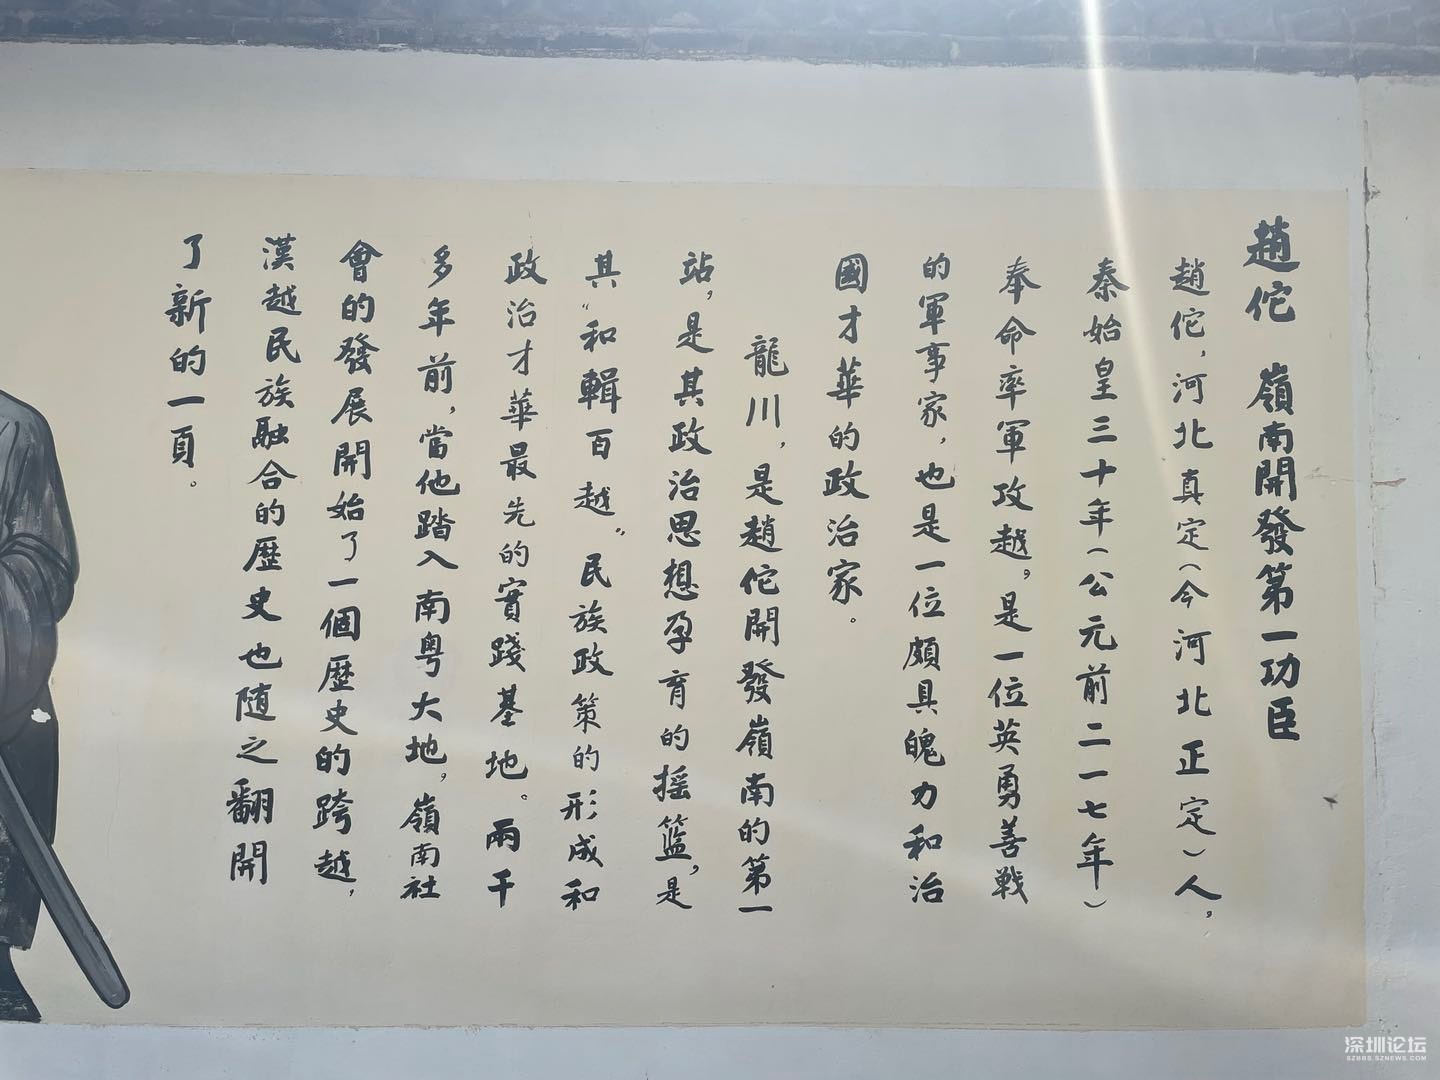 趙佗 嶺南開發第一功臣
趙佗，河北真定（今河北正定）人，
秦始皇三十年（公元前二一七年）
奉命率軍攻越。是一位英勇善戰
的軍事家，也是一位頗具魄力和治
國才華的政治家。
龍川，是趙佗開發嶺南的第一
站，是其政治思想孕育的摇篮，是
其“和輯百越”民族政策的形成和
政治才華最先的實踐基地。兩千
多年前，當他踏入南粤大地，嶺南社
會的發展開始了一個歷史的跨越，
漢越民族融合的歷史也随之翻開
了新的一頁。
深圳论坛
SZBBS.SZNEWS.COM